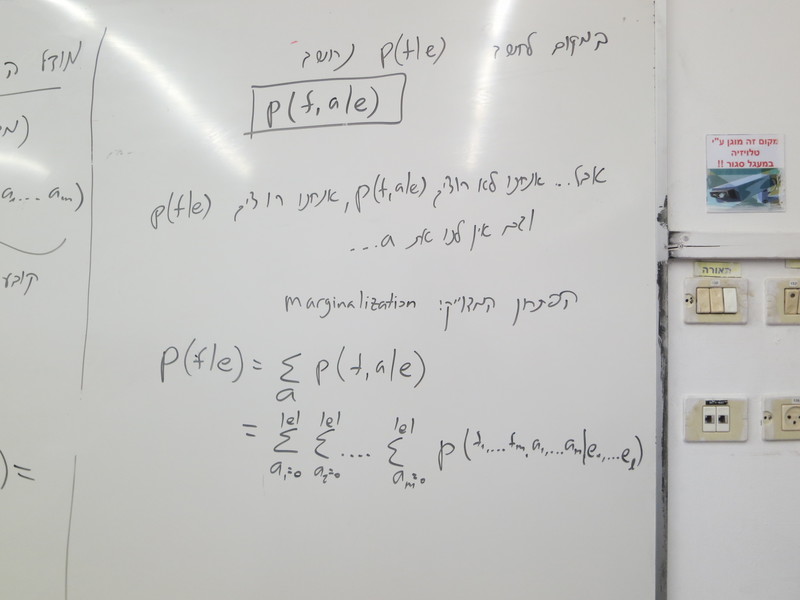 במקום לחשב p(f|e) נחשב
p(f,a|e)
אבל... אנחנו לא רוצים p(f,a|e), אנחנו רוצים p(f|e)
וגם אין לנו את a...
הפתרון המדוייק: marginalization
p(f|e) = Σ_a p(f,a|e)
= Σ_{a₁=0}^{|e|} Σ_{a₂=0}^{|e|} .... Σ_{a_m=0}^{|e|} p(f₁,...f_m,a₁,...a_m|e₀,...e_l)
מודל ה
a,... a_m)
קובע
)=
מקום זה מוגן ע"י
טלויזיה
במעגל סגור !!
תאורה